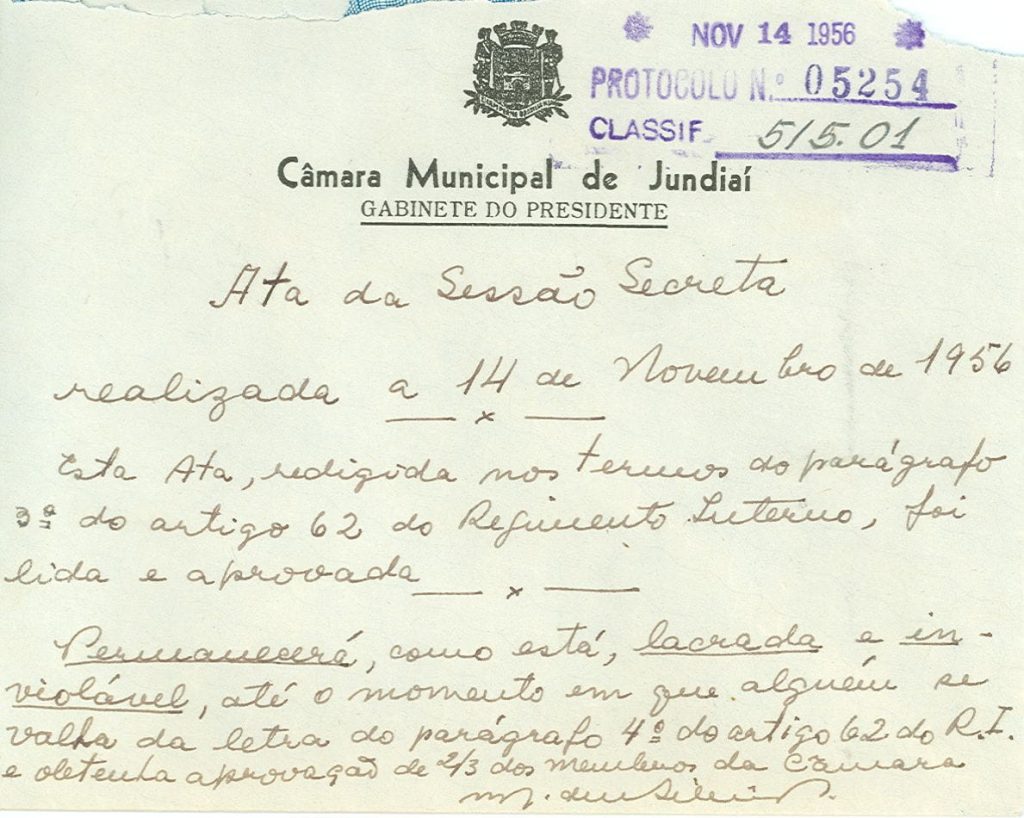 NOV 14 1956
PROTOCOLO N.º 05254
CLASSIF. 515.01
Câmara Municipal de Jundiaí
GABINETE DO PRESIDENTE
Ata da Sessão Secreta
realizada a 14 de Novembro de 1956
— x —
Esta Ata, redigida nos termos do parágrafo
3º do artigo 62 do Regimento Interno, foi
lida e aprovada — x —
Permanecerá, como está, lacrada e in-
violável, até o momento em que alguém se
valha da letra do parágrafo 4º do artigo 62 do R.I.
e obtenha aprovação de 2/3 dos membros da Câmara